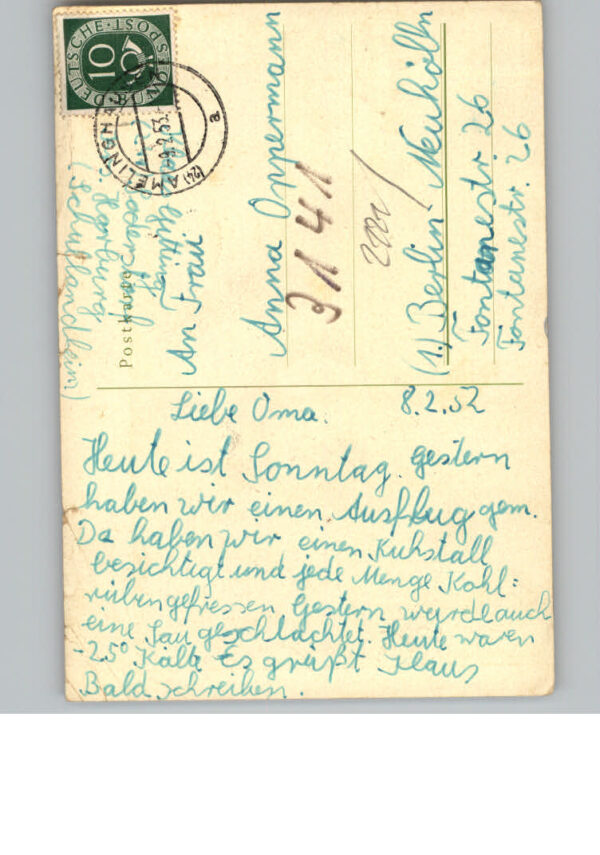 DEUTSCHE · POST
10
(24) AMELINGHA
9.2.53.
a
Postkarte
Harburg
(Schullandheim)
An Frau
Anna Oppermann
3141
(1.) Berlin Neukölln
Fontanestr. 26
Fontanestr. 26
Liebe Oma. 8.2.52
Heute ist Sonntag. gestern
haben wir einen Ausflug gem.
Da haben wir einen Kuhstall
besichtigt und jede Menge Kohl=
rüben gefressen Gestern wurde auch
eine Sau geschlachtet. Heute waren
-25° Kälte Es grüßt Klaus
Bald schreiben.